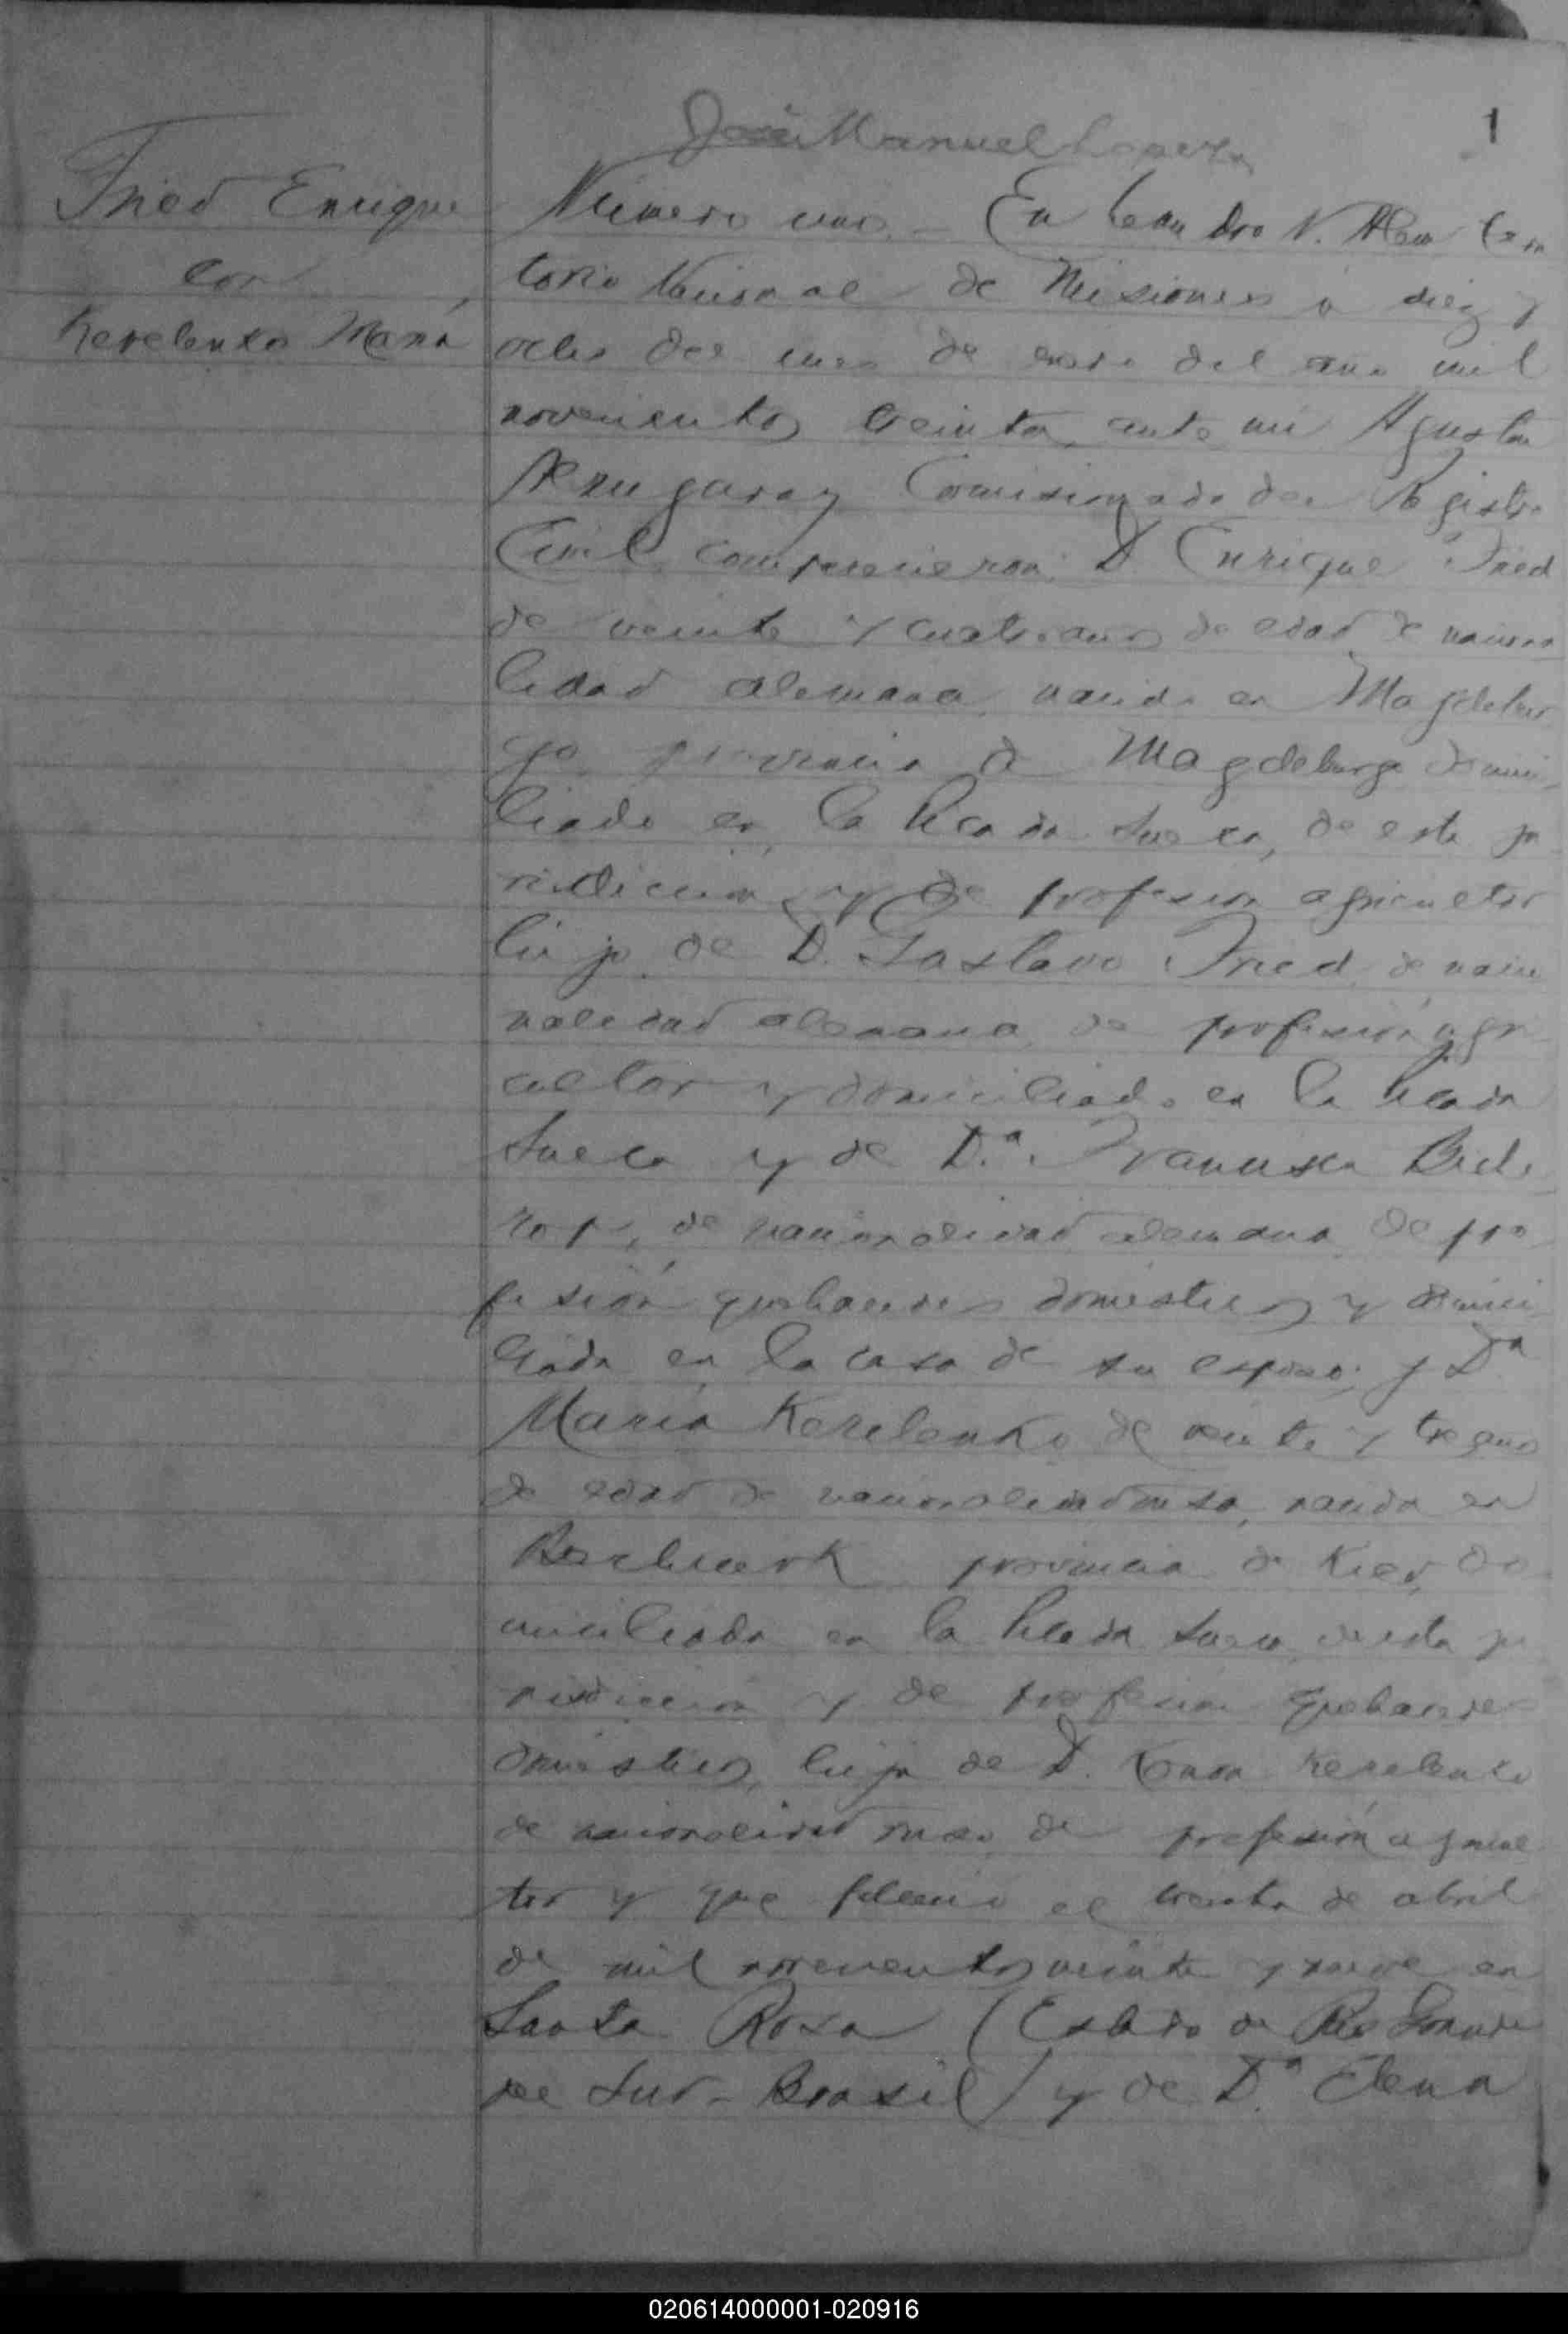 José Manuel
1
Fried Enrique
con
Kerelenko María
Número uno.- En Leandro N. Alem terri
torio Nacional de Misiones á diez y
ocho del mes de enero del año mil
novecientos treinta, ante mi Agustin
Comisionado del Registro
Civil, comparecieron: D. Enrique Fried
de veinte y cuatro años de edad de naciona
lidad alemana, nacido en Magdebur
go provincia de Magdeburgo domici
liado en la Picada Sueca, de esta ju
risdicción y de profesión agricultor
hijo de D. Gustavo Fried, de nacio
nalidad alemana, de profesión agri
cultor y domiciliado en la Picada
Sueca y de D.ª Francisca
de nacionalidad alemana, de pro
fesión quehaceres domésticos y domici
liada en la casa de su esposo; y D.ª
María Kerelenko de veinte y tres años
de edad de nacionalidad rusa, nacida en
provincia de Kiev, do
miciliada en la Picada Sueca, de esta ju
risdicción y de profesión quehaceres
domésticos, hija de D. Kerelenko
de nacionalidad rusa, de profesión agricul
tor y que falleció el treinta de abril
de mil novecientos veinte y nueve en
Santa Rosa (Estado de Rio Grande
del Sur - Brasil) y de D.ª Elena
020614000001-020916